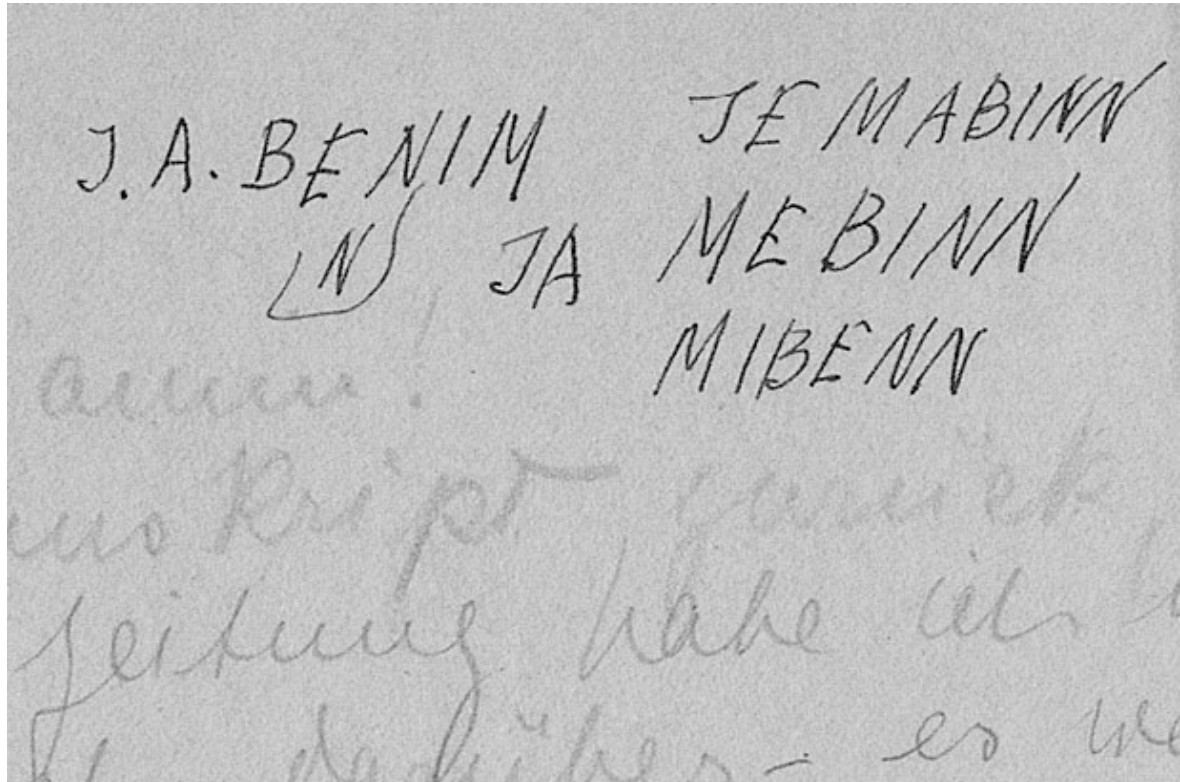 J.A. BENIM JE MABINN
N JA MEBINN
MIBENN
!
zurück
Zeitung habe ich
darüber - es